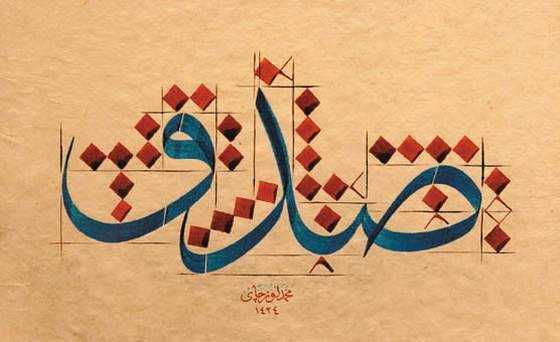 صدق
محمد اوزچاى
١٤٢٤